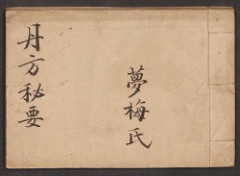 夢梅氏
丹方秘要